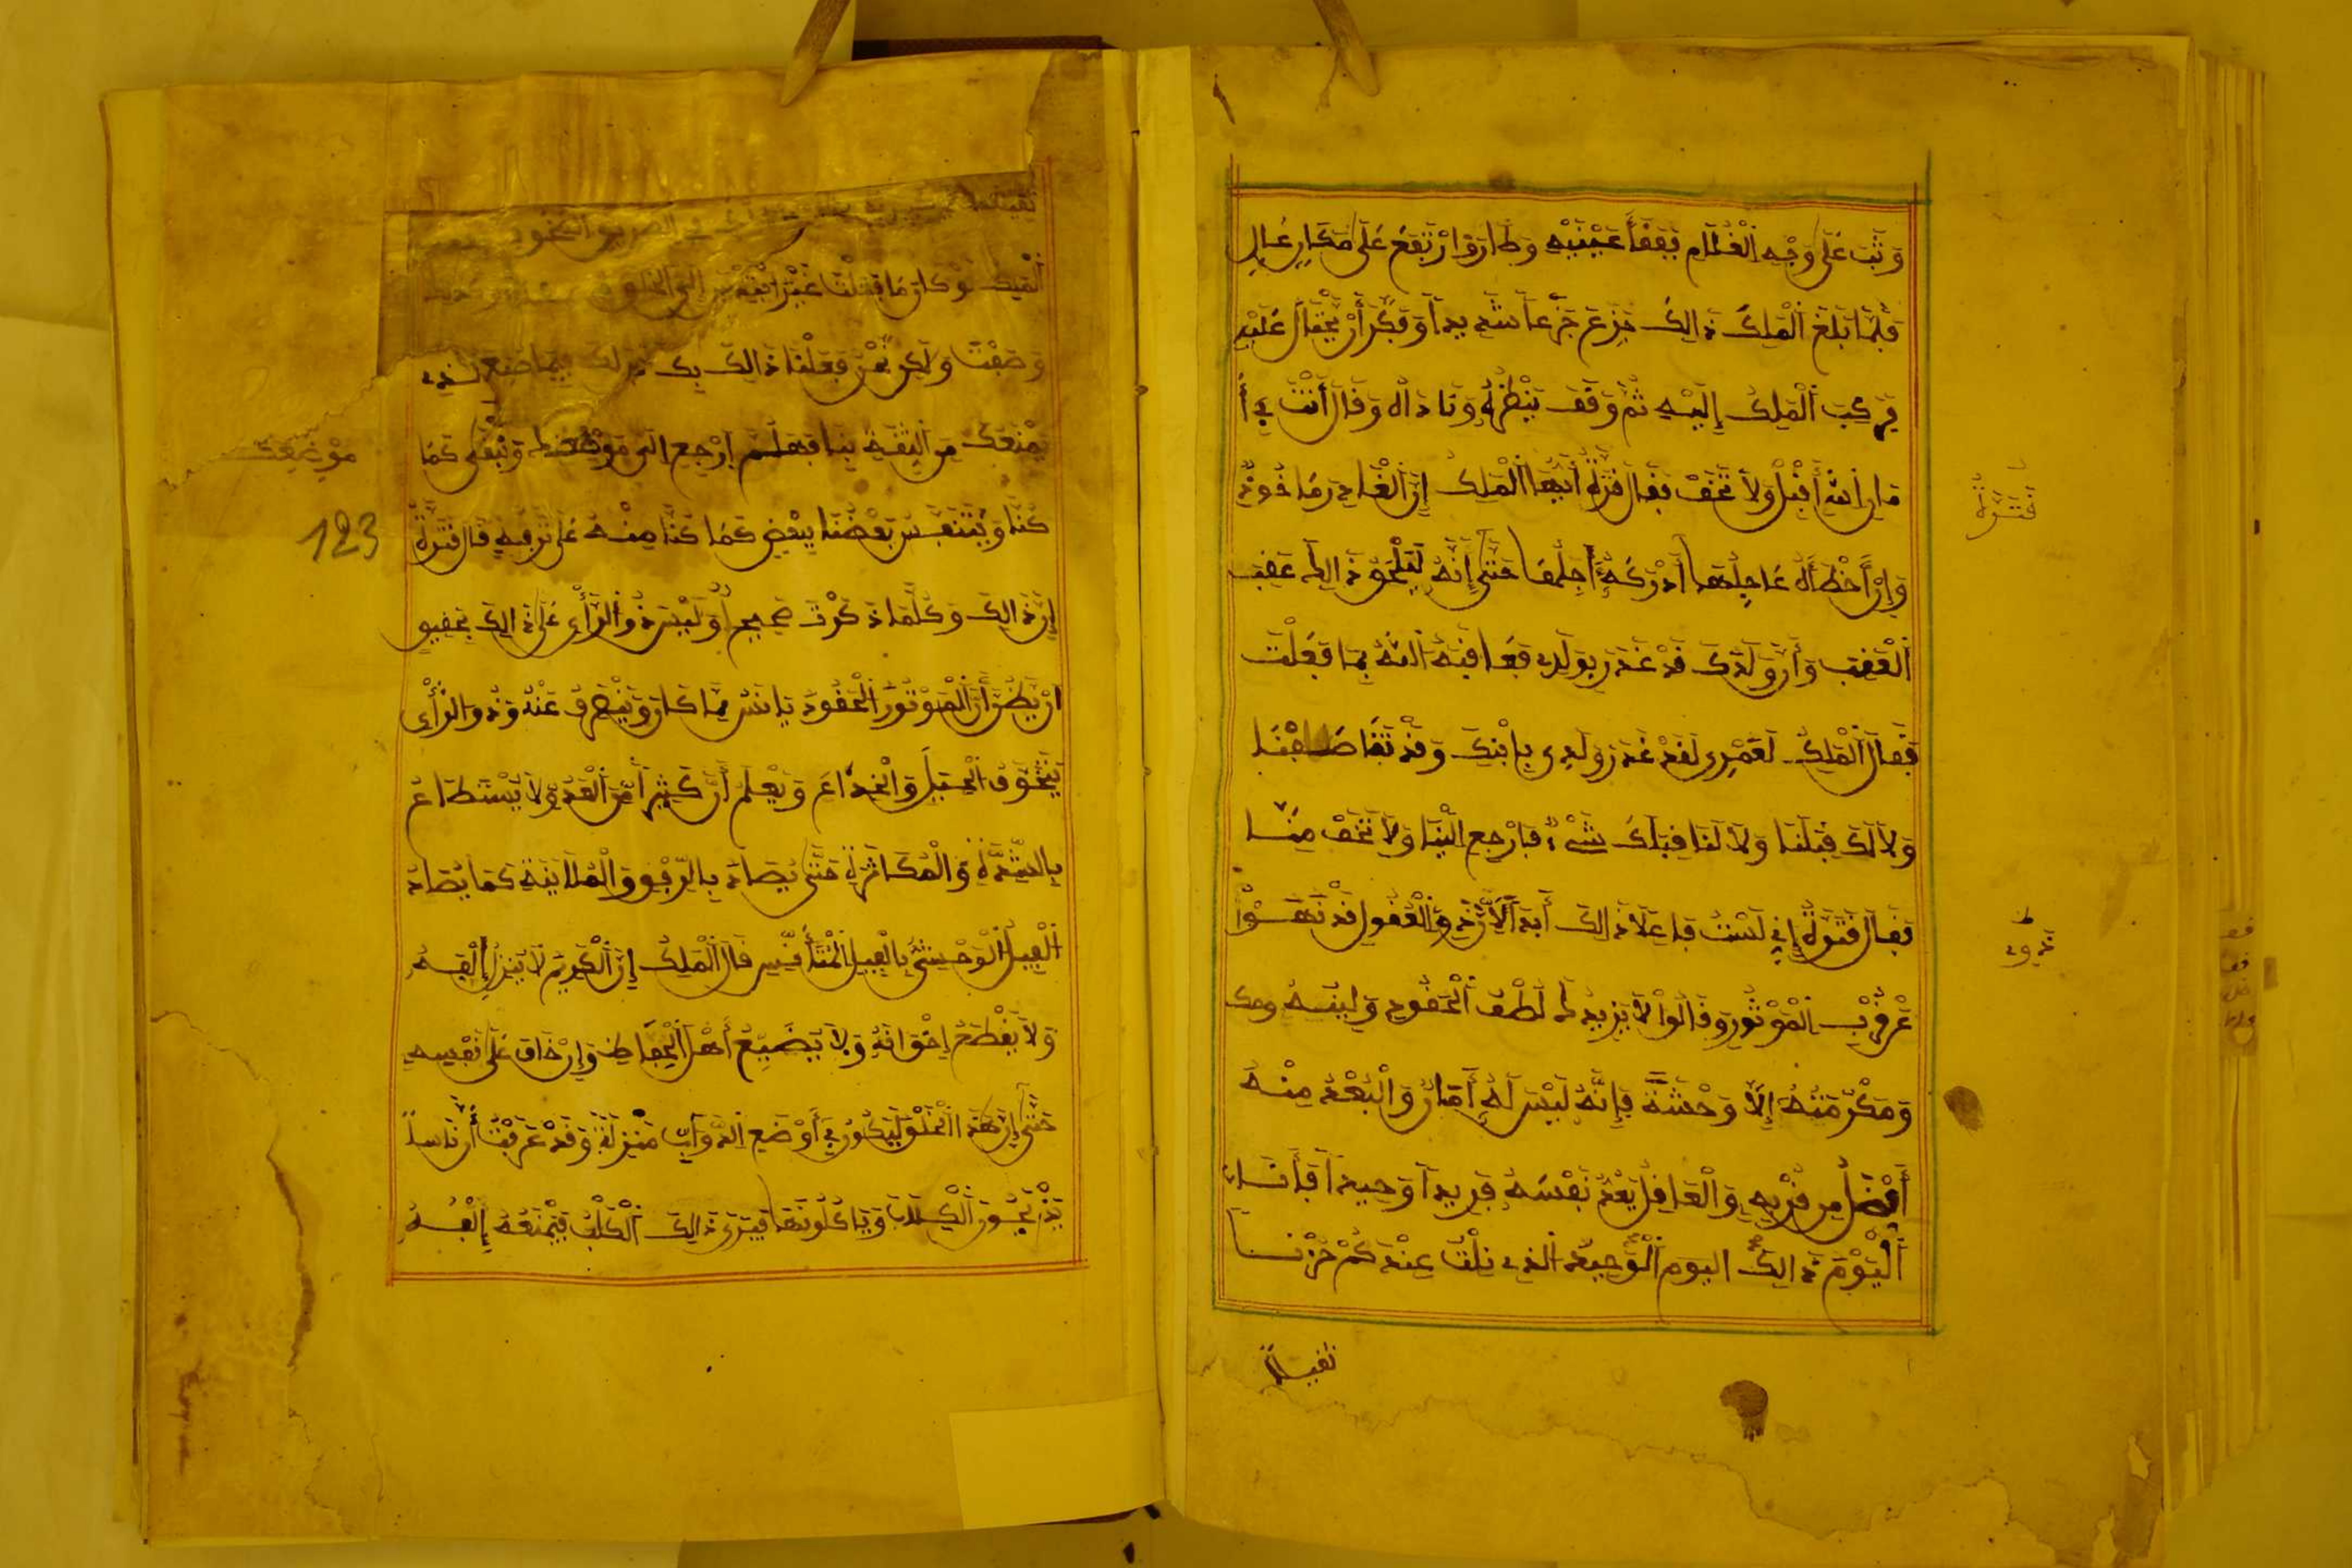 وَثَبَ عَلَى وَجْهِ الْغُلَامِ فَفَقَأَ عَيْنَيْهِ وَطَارَ وَارْتَفَعَ عَلَى مَكَانٍ عَالٍ
فَلَمَّا بَلَغَ الْمَلِكَ ذَالِكَ جَزِعَ جَزَعاً شَدِيداً وَفَكَّرَ أَنْ يَحْتَالَ عَلَيْهِ
فَرَكِبَ الْمَلِكُ إِلَيْهِ ثُمَّ وَقَفَ يَنْظُرُهُ وَنَادَاهُ وَقَالَ أَنْتَ فِي أَ
مَانِ اللهِ أَقْبِلْ وَلَا تَخَفْ فَقَالَ قَنْزَةُ أَيُّهَا الْمَلِكُ إِنَّ الْغَادِرَ مَاخُوذٌ
وَإِنْ أَخْطَأَهُ عَاجِلُهَا أَدْرَكَهُ أَجِلُهَا حَتَّى إِنَّهُ لَيَلْحَقُ ذَالِكَ عَقِبَ
الْعَقِبِ وَأَنَّ وَلَدَكَ قَدْ غَدَرَ بِوَلَدِي فَعَاقَبَهُ اللهُ بِمَا فَعَلْتَ
فَقَالَ الْمَلِكُ لَعَمْرِي لَقَدْ غَدَرَ وَلَدِي بِابْنِكَ وَقَدْ تَقَاصَصْنَا
وَلَا لَكَ قِبَلَنَا وَلَا لَنَا قِبَلَكَ شَيْءٌ فَارْجِعْ إِلَيْنَا وَلَا تَخَفْ مِنَّا
فَقَالَ قَنْزَةُ إِنِّي لَسْتُ فَاعِلًا ذَالِكَ أَبَداً لِأَنَّ ذَوِي الْعُقُولِ قَدْ نَهَوْا
عَنْ قُرْبِ الْمَوْتُورِ وَقَالُوا لَا يَزِيدُكَ لُطْفُ الْحَقُودِ وَلِينُهُ
وَمَكْرَمَتُهُ إِلَّا وَحْشَةً فَإِنَّهُ لَيْسَ لَهُ أَمَانٌ وَالْبُعْدُ مِنْهُ
أَفْضَلُ مِنْ قُرْبِهِ وَالْعَاقِلُ يَعُدُّ نَفْسَهُ فَرِيداً وَحِيداً فَأَنَا
الْيَوْمَ ذَالِكَ الْيَوْمَ الْوَحِيدُ الَّذِي نِلْتُ عِنْدَكُمْ حُزْناً
ثَقِيلًا
قَنْزَةُ
ذوي
وَصَفْتَ وَلَكِنْ نَحْنُ فَعَلْنَا ذَالِكَ بِكَ فِيمَا صَنَعَ الَّذِي
يَمْنَعُكَ مِنَ الثِّقَةِ بِنَا فَهَلُمَّ ارْجِعْ إِلَى مَوْضِعِكَ وَنَبْقَى كَمَا
موضعك
كُنَّا وَيَتَنَفَّسُ بَعْضُنَا بِبَعْضٍ كَمَا كُنَّا مِنْهُ عَلَى تَرْفِيهٍ قَالَ قَنْزَةُ
123
إِنَّ ذَالِكَ وَكُلَّمَا ذَكَرْتَ صَحِيحٌ وَلَيْسَ ذُو الرَّأْيِ عَلَى ذَالِكَ بِحَقِيقٍ
أَنْ يَظُنَّ أَنَّ الْمَوْتُورَ الْحَقُودَ نَاسٍ مَا كَانَ وَيَنْصَرِفُ عَنْهُ وَذُو الرَّأْيِ
يَتَخَوَّفُ الْحِيَلَ وَالْخِدَاعَ وَيَعْلَمُ أَنَّ كَثِيراً مِنَ الْعَدُوِّ لَا يُسْتَطَاعُ
بِالشِّدَّةِ وَالْمُكَاثَرَةِ حَتَّى يُصَادَ بِالرِّفْقِ وَالْمُلَايَنَةِ كَمَا يُصَادُ
الْفِيلُ الْوَحْشِيُّ بِالْفِيلِ الْمُتَأَنِّسِ قَالَ الْمَلِكُ إِنَّ الْكَرِيمَ لَا يَتْرُكُ إِلْفَهُ
وَلَا يَقْطَعُ إِخْوَانَهُ وَلَا يُضَيِّعُ أَهْلَ الْحِفَاظِ وَإِنْ خَافَ عَلَى نَفْسِهِ
حَتَّى إِنَّ هَذَا الْخُلُقَ لَيَكُونُ فِي أَوْضَعِ الدَّوَابِّ مَنْزِلَةً وَقَدْ عَرَفْتُ أَنَّ نَاساً
يَذْبَحُونَ الْكِلَابَ وَيَاكُلُونَهَا فَيَرَى ذَالِكَ الْكَلْبُ فَيَمْنَعُهُ إِلْفُهُ